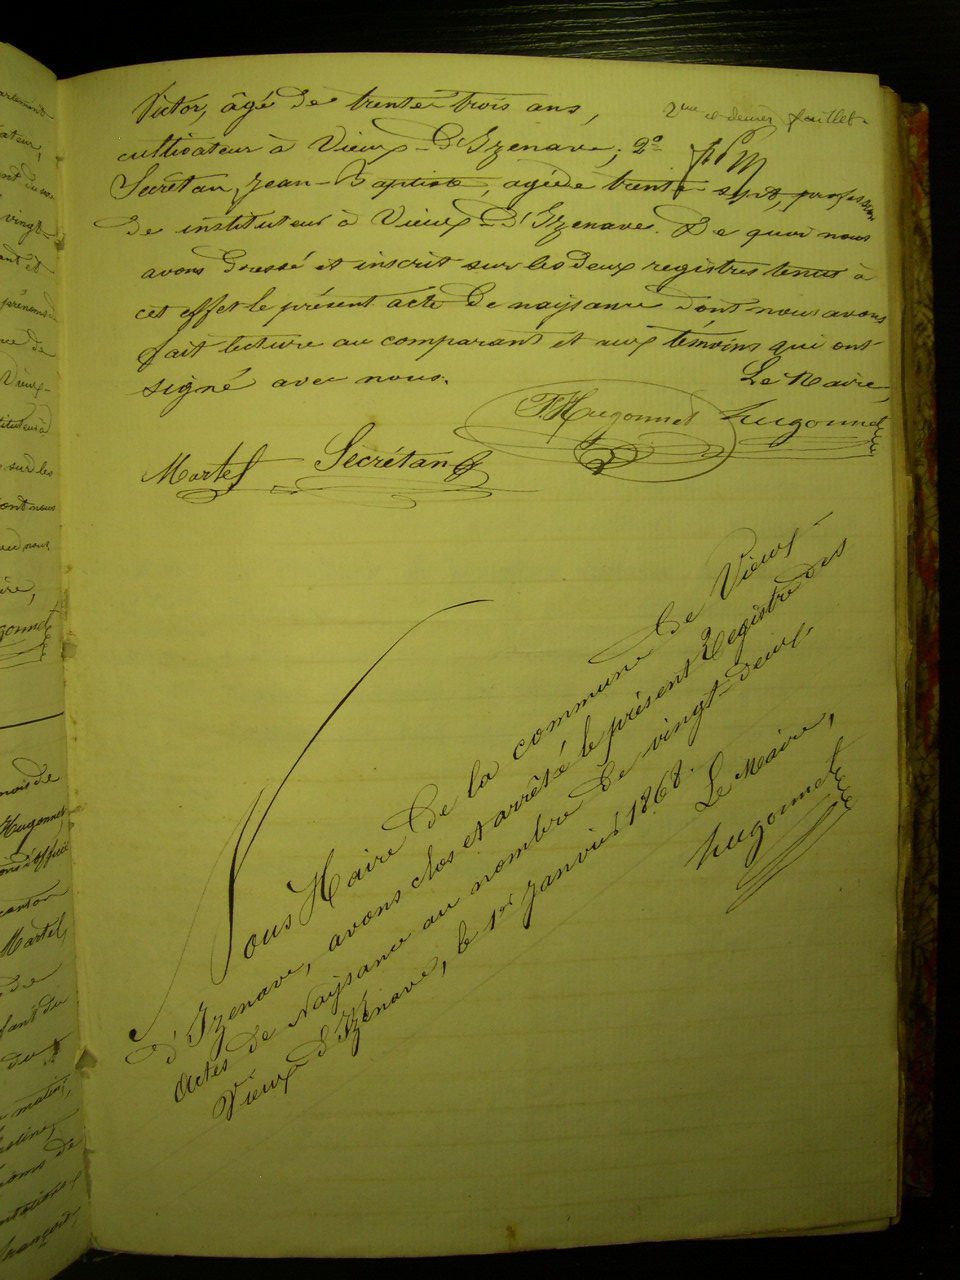 Victor, âgé de trente trois ans,
cultivateur à Vieux-d'Izenave; 2°
Secrétan, Jean-Baptiste, âgé de trente sept, profession
de instituteur à Vieux-d'Izenave. De quoi nous
avons dressé et inscrit sur les deux registres tenus à
cet effet le présent acte de naissance dont nous avons
fait lecture au comparant et aux témoins qui ont
signé avec nous.
Le Maire,
F. Hugonnet Hugonnet
Martel Secrétan
Nous Maire de la commune de Vieux-
d'Izenave, avons clos et arrêté le présent Registre des
Actes de Naissance au nombre de vingt-deux.
Vieux d'Izenave, le 1er Janvier 1868.
Le Maire,
Hugonnet
2me et dernier feuillet
ateur,
vingt-
ant et
prénoms
ce de
Vieux-
sur les
dont nous
ire,
mois de
Hugonnet
canton
Martel,
de
matin,